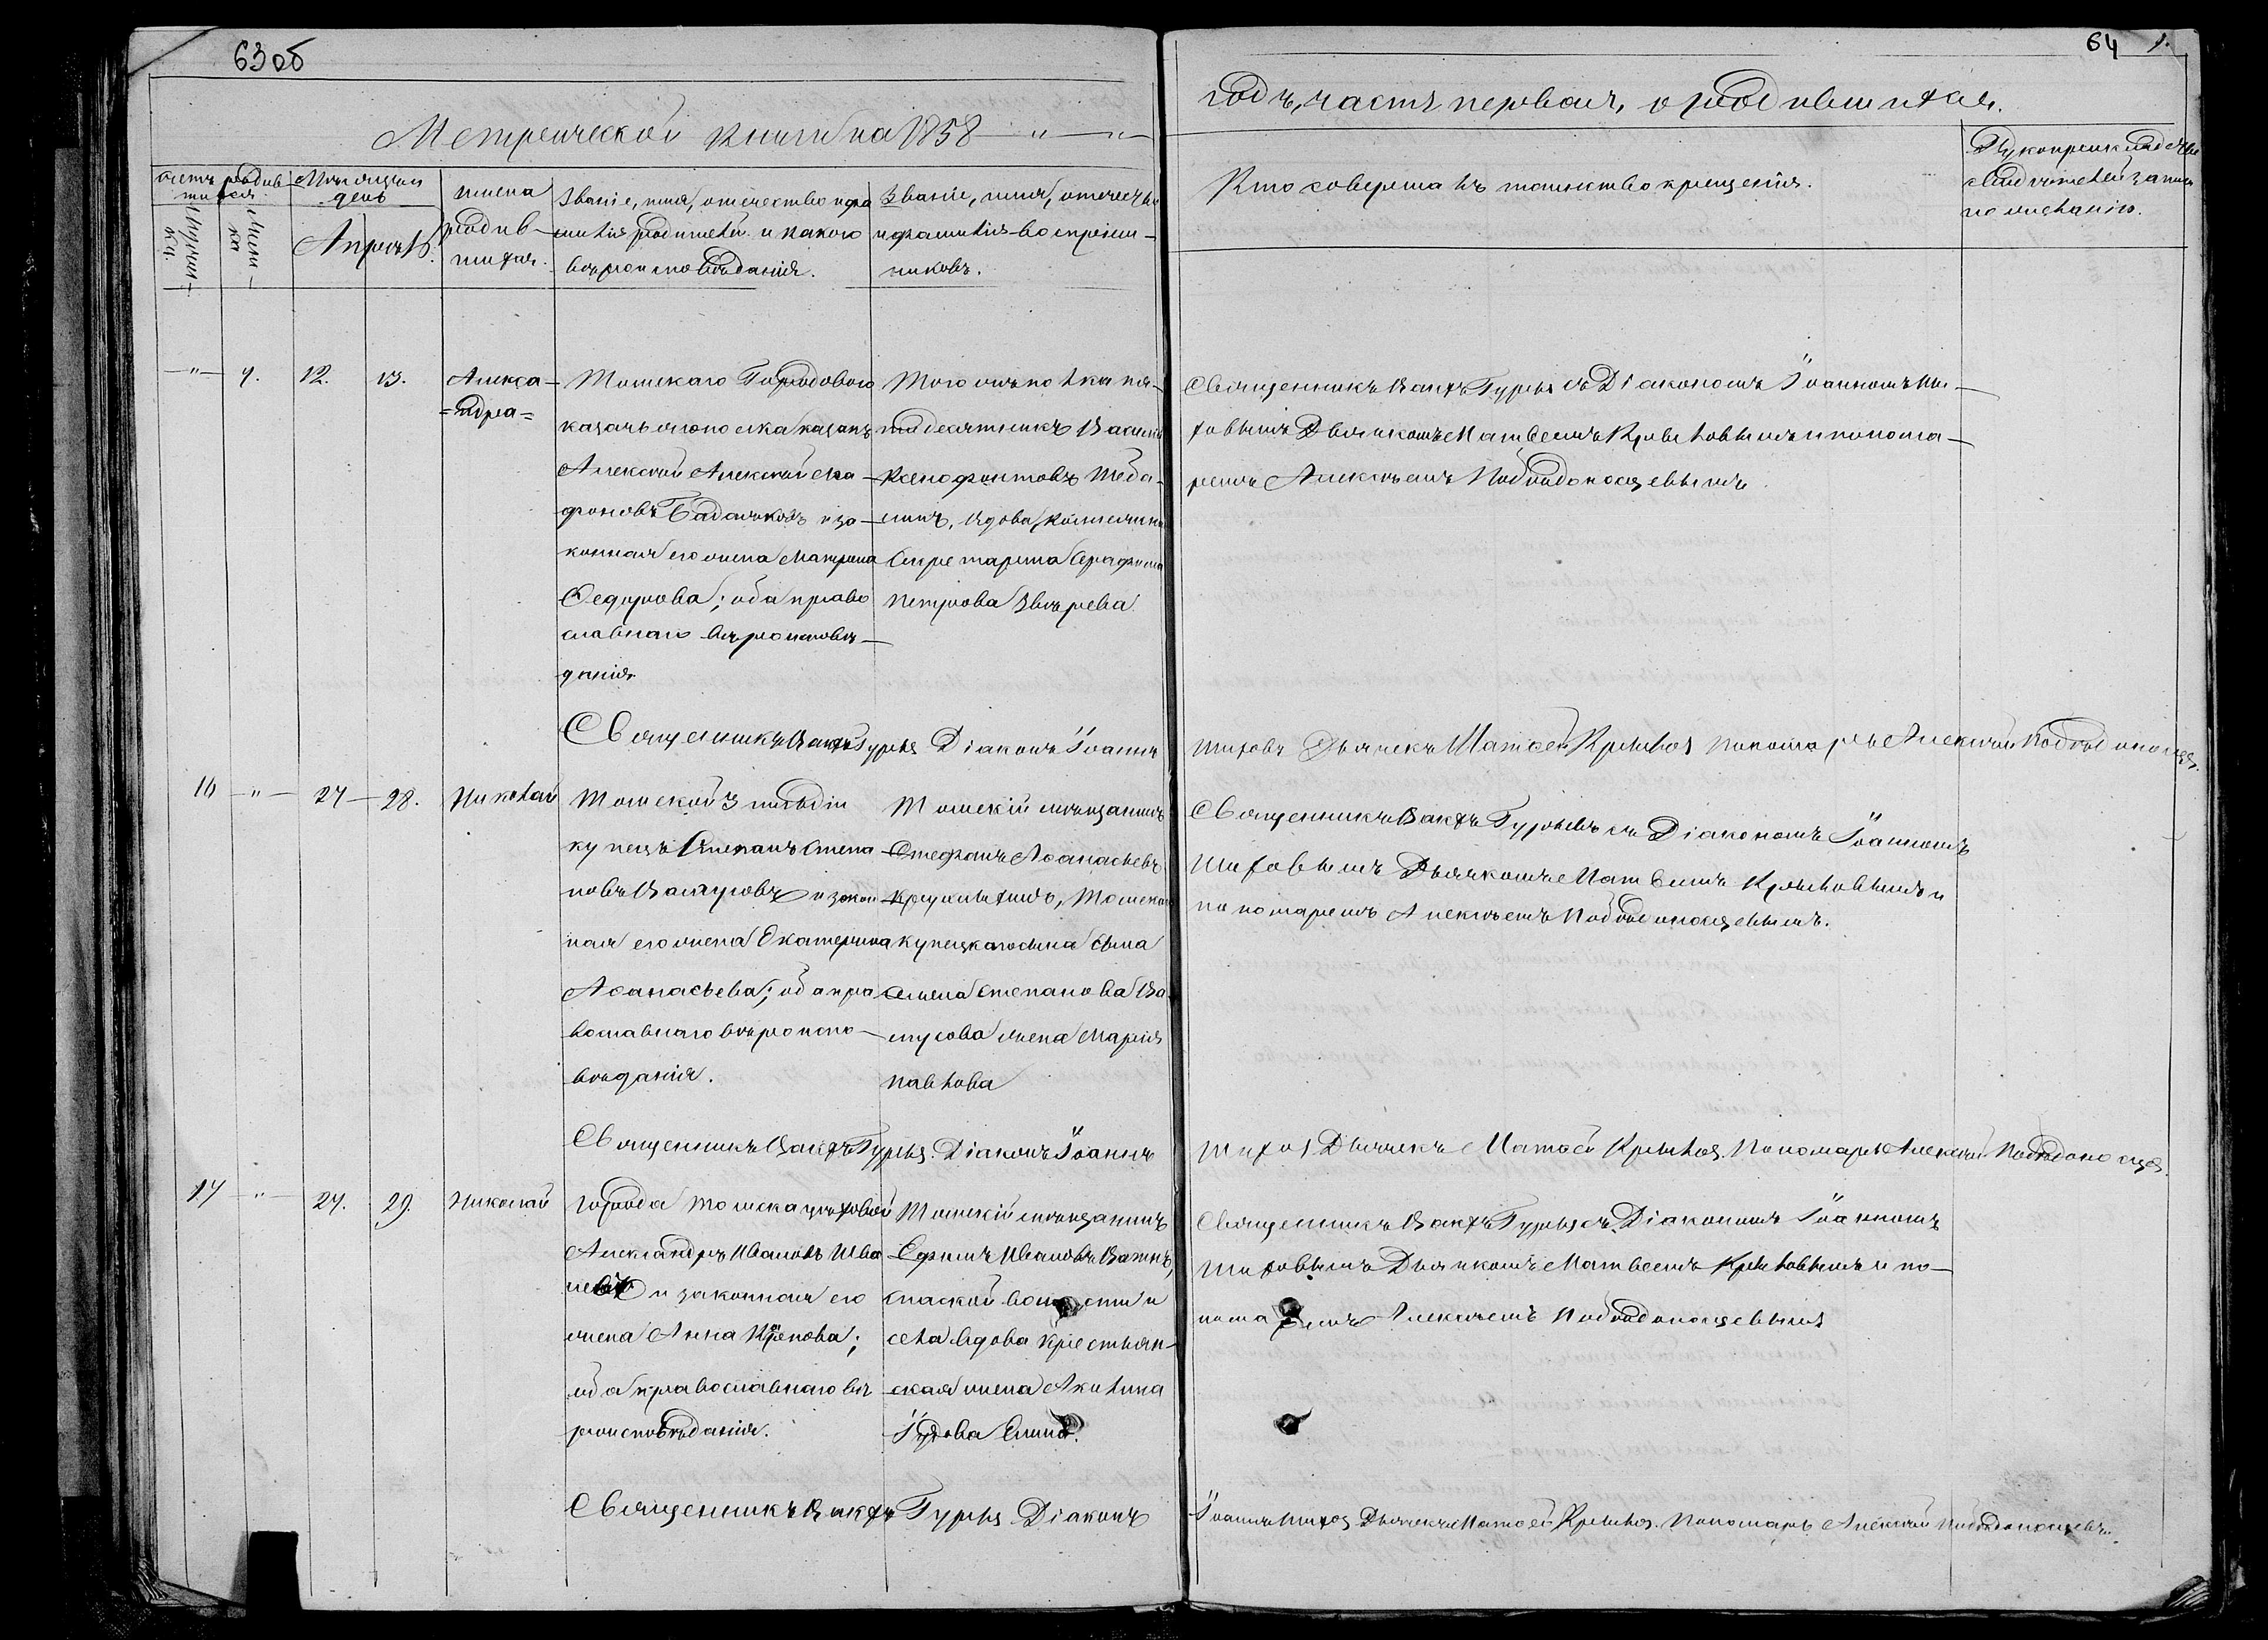 63об
64
Метрической книги на 1858
годъ, часть первая, о родившихся.
Счетъ родив-
шихся.
Мужеск-
Женс-
ка
Мѣсяцъ и
день
Апрѣль.
Имена
родив-
шихся.
Званіе, имя, отечество и фа
милія родителей и какого
вѣроисповѣданія.
Званіе, имя, отечество
и фамилія воспріем-
никовъ.
Кто совершалъ таинство крещенія.
Рукоприкладство
свидѣтелей записи
по желанію.
12.
13.
Алекса-
=ндра=
Томскаго Городового
казачьяго полка казакъ
Алексѣй Алексѣй
Бадачковъ и за-
конная его жена Матрена
Федорова; оба право
славнаго вѣроисповѣ-
данія
Того же полка пя-
тидесятникъ Василій
Ксенофонтовъ
вдова
Секретарша Серафима
Петрова Звѣрева
Священникъ Вакхъ Гурьевъ съ Діакономъ Іоанномъ Ши-
ховымъ Дьячкомъ Матвеемъ Крыловымъ и понома-
ремъ Алексѣемъ Победоносцевымъ.
Священникъ Вакхъ Гурьевъ Діаконъ Іоаннъ
Шиховъ Дьячекъ Матѳей Крыловъ Пономарь Алексѣй Победоносцев.
16
27
28.
Николай
Томской 3 гильдіи
купецъ Степанъ Степа
новъ Валгусовъ и закон
ная его жена Екатерина
Аѳанасьева; оба пра
вославнаго вѣроиспо-
вѣданія.
Томскій мѣщанинъ
Стефанъ Аѳанасьевъ
Томскаго
купецкаго сына
Семена Степанова Ва
лгусова жена Марія
Павлова
Священникъ Вакхъ Гурьевъ съ Діакономъ Іоанномъ
Шиховымъ Дьячкомъ Матвеемъ Крыловымъ и
пономаремъ Алексѣемъ Победоносцевымъ.
Священникъ Вакхъ Гурьевъ. Діаконъ Іоаннъ
Шиховъ Дьячекъ Матѳей Крыловъ. Пономарь Алексѣй Победоносцев.
17
27.
29.
Николай
Города Томска цѣховой
Александръ Ивановъ Ива
и законная его
жена Анна Карпова;
оба православнаго вѣ
роисповѣданія.
Томскій мѣщанинъ
Ефимъ Ивановъ
Спаской волости и
села вдова крестьян-
ская жена Акилина
Священникъ Вакхъ Гурьевъ съ Діакономъ Іоанномъ
Шиховымъ Дьячкомъ Матвеемъ Крыловымъ и по-
номаремъ Алексѣемъ Победоносцевымъ
Священникъ Вакхъ Гурьевъ Діаконъ
Іоаннъ Шиховъ Дьячекъ Матѳей Крыловъ. Пономарь Алексѣй Победоносцевъ.